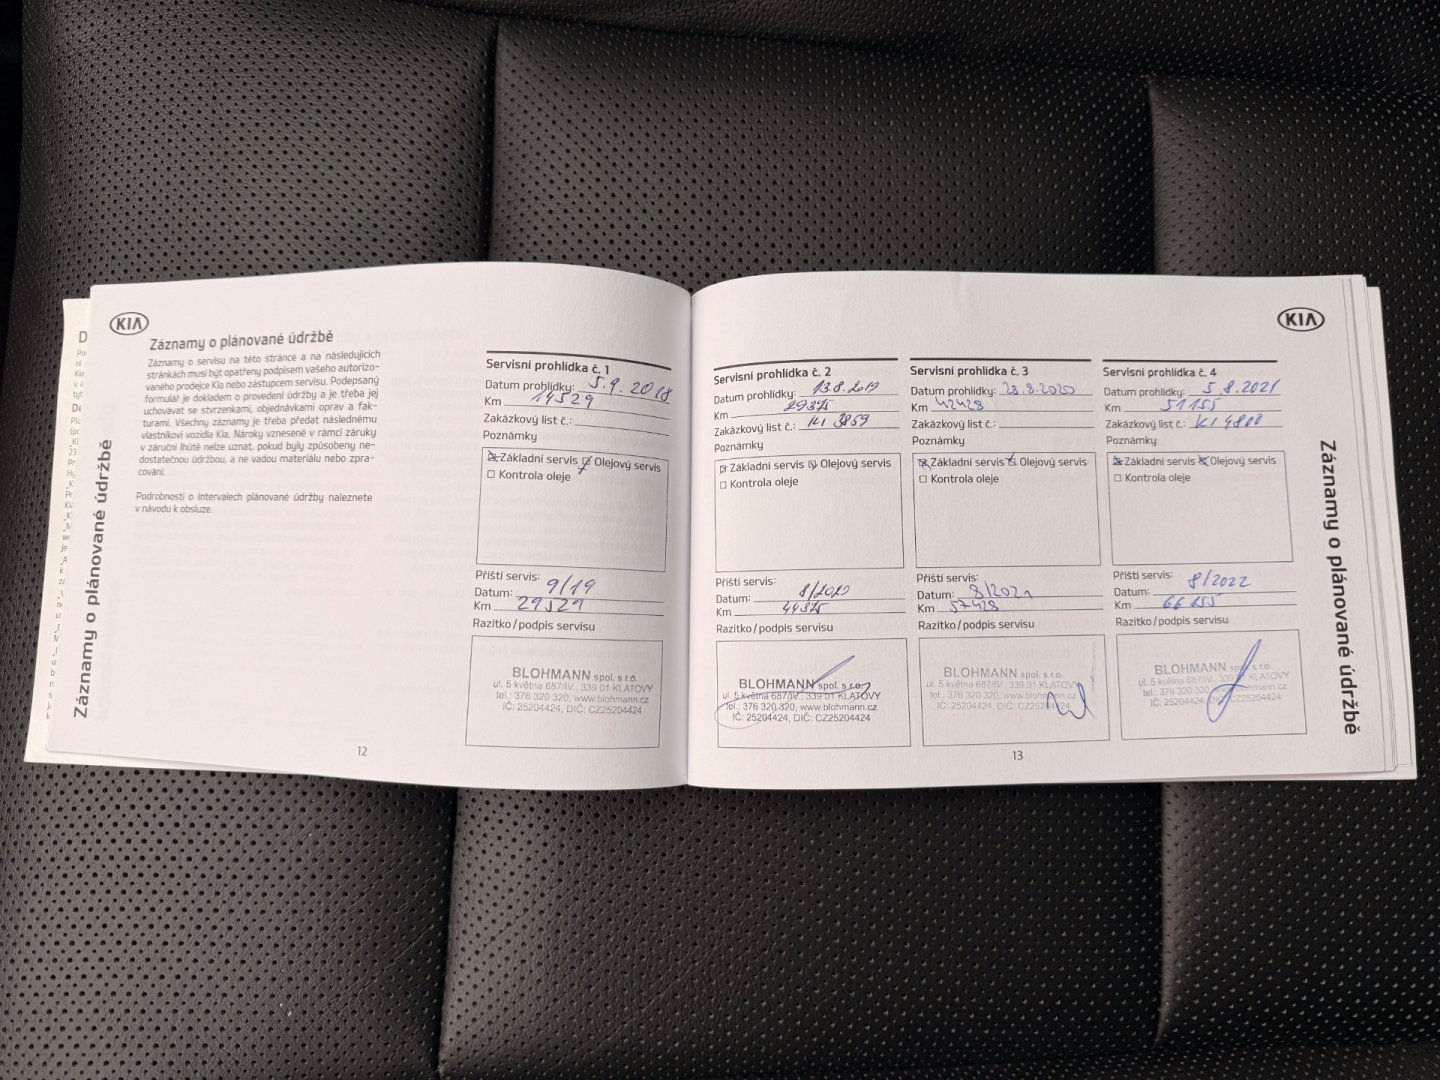 KIA
Záznamy o plánované údržbě
Záznamy o servisu na této stránce a na následujících
stránkách musí být opatřeny podpisem vašeho autorizo-
vaného prodejce Kia nebo zástupcem servisu. Podepsaný
formulář je dokladem o provedení údržby a je třeba jej
uchovávat se stvrzenkami, objednávkami oprav a fak-
turami. Všechny záznamy je třeba předat následnému
vlastníkovi vozidla Kia. Nároky vznesené v rámci záruky
v záruční lhůtě nelze uznat, pokud byly způsobeny ne-
dostatečnou údržbou, a ne vadou materiálu nebo zpra-
cování.
Podrobnosti o intervalech plánované údržby naleznete
v návodu k obsluze.
Záznamy o plánované údržbě
Servisní prohlídka č. 1
Datum prohlídky: 5.9.2018
Km 14529
Zakázkový list č.:
Poznámky
Základní servis Olejový servis
Kontrola oleje
Příští servis:
Datum: 9/19
Km 29529
Razítko/podpis servisu
BLOHMANN spol. s r.o.
ul. 5 května 687/IV, 339 01 KLATOVY
tel.: 376 320 320, www.blohmann.cz
IČ: 25204424, DIČ: CZ25204424
12
Servisní prohlídka č. 2
Datum prohlídky: 13.8.2019
Km 29375
Zakázkový list č.: KI 3859
Poznámky
Základní servis Olejový servis
Kontrola oleje
Příští servis:
Datum: 8/2020
Km 44375
Razítko/podpis servisu
BLOHMANN spol. s r.o.
ul. 5 května 687/IV, 339 01 KLATOVY
tel.: 376 320 320, www.blohmann.cz
IČ: 25204424, DIČ: CZ25204424
Servisní prohlídka č. 3
Datum prohlídky: 28.8.2020
Km 42428
Zakázkový list č.:
Poznámky
Základní servis Olejový servis
Kontrola oleje
Příští servis:
Datum: 8/2021
Km 57428
Razítko/podpis servisu
BLOHMANN spol. s r.o.
ul. 5 května 687/IV, 339 01 KLATOVY
tel.: 376 320 320, www.blohmann.cz
IČ: 25204424, DIČ: CZ25204424
13
KIA
Servisní prohlídka č. 4
Datum prohlídky: 5.8.2021
Km 51155
Zakázkový list č.: KI 4800
Poznámky
Základní servis Olejový servis
Kontrola oleje
Příští servis:
Datum: 8/2022
Km 66155
Razítko/podpis servisu
BLOHMANN spol. s r.o.
ul. 5 května 687/IV, 339 01 KLATOVY
tel.: 376 320 320, www.blohmann.cz
IČ: 25204424, DIČ: CZ25204424
Záznamy o plánované údržbě